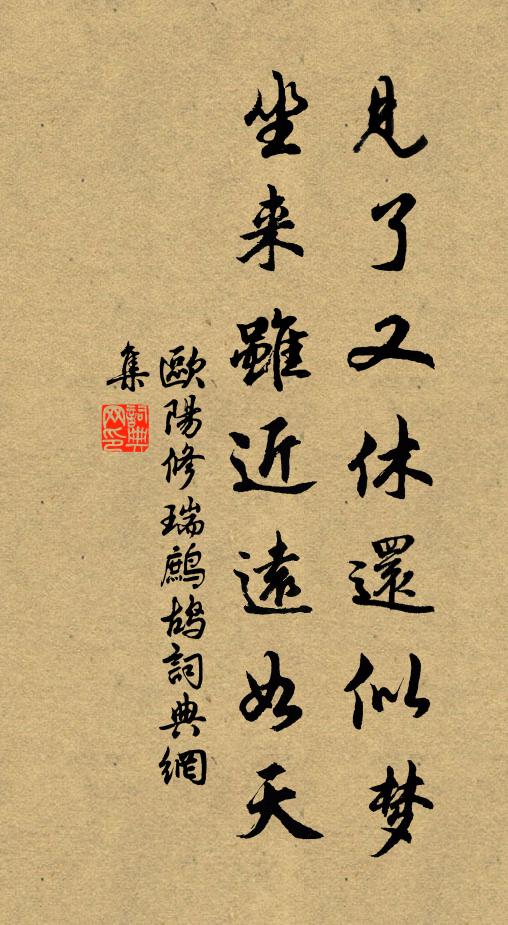 見了又休還似梦
坐来雖近遠如天
歐陽修瑞鷓鴣詞典網
集
詞典网印